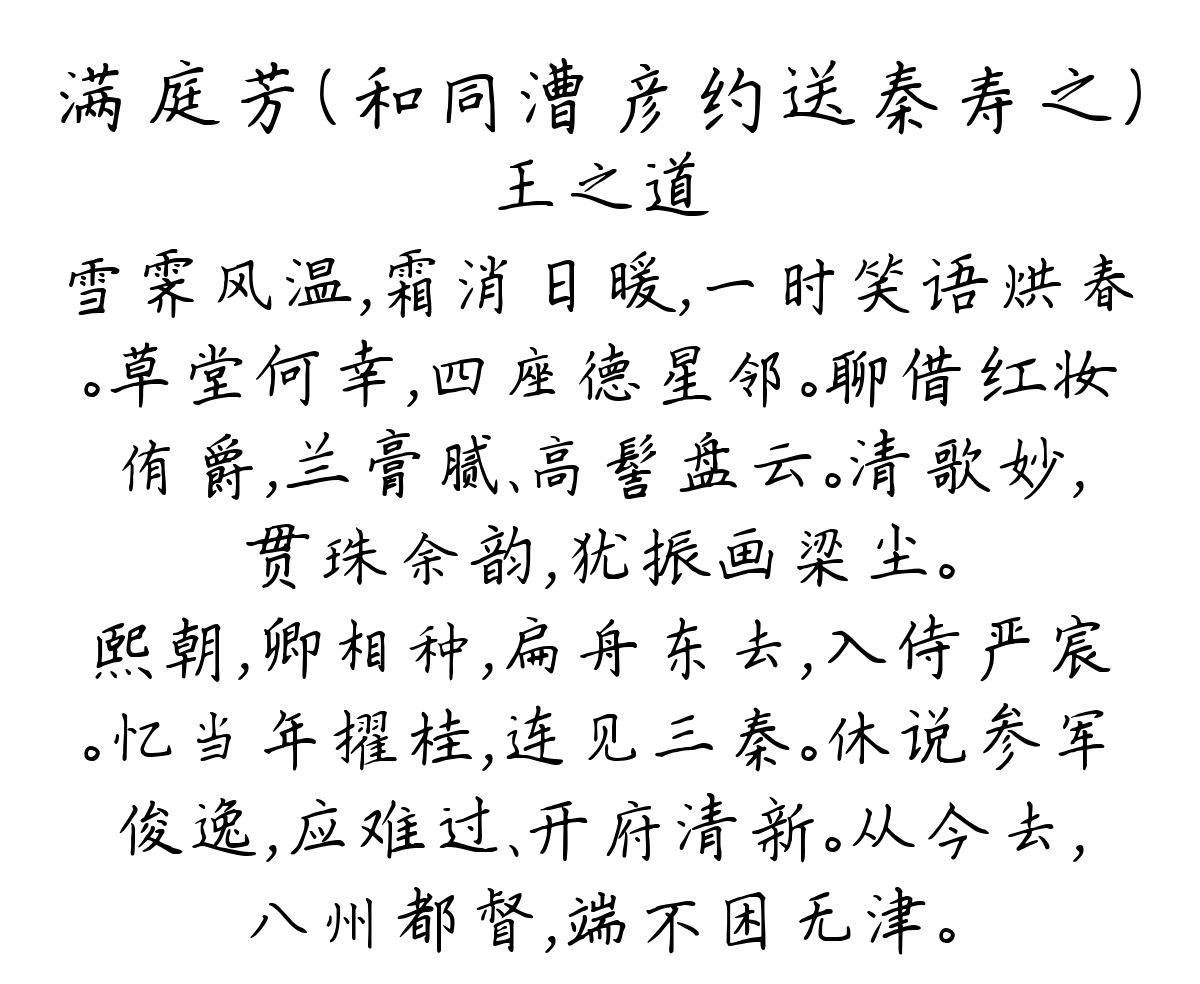 满庭芳(和同漕彦约送秦寿之)
王之道
雪霁风温,霜消日暖,一时笑语烘春
。草堂何幸,四座德星邻。聊借红妆
侑爵,兰膏腻、高髻盘云。清歌妙,
贯珠余韵,犹振画梁尘。
熙朝,卿相种,扁舟东去,入侍严宸
。忆当年擢桂,连见三秦。休说参军
俊逸,应难过、开府清新。从今去,
八州都督,端不困无津。